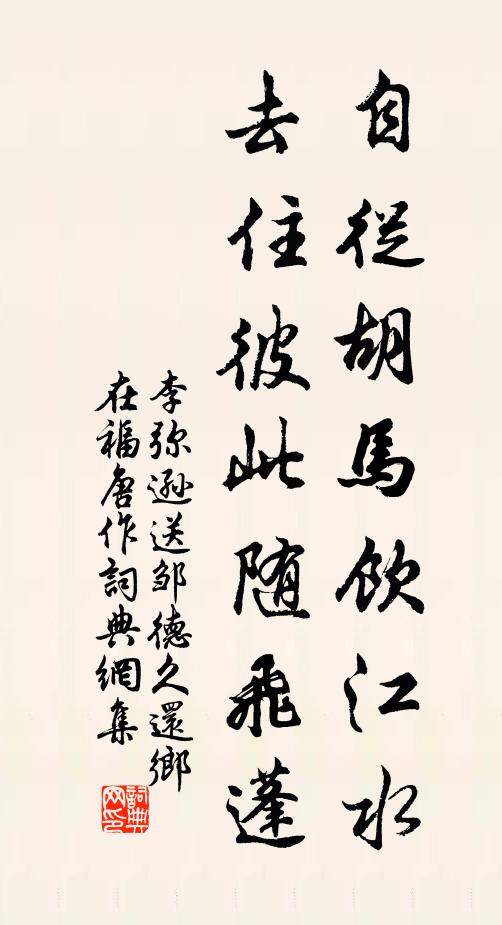 自從胡馬飲江水
去住彼此随飛蓬
李弥遜送邹德久還鄉
在福唐作詞典網集
詞典网印